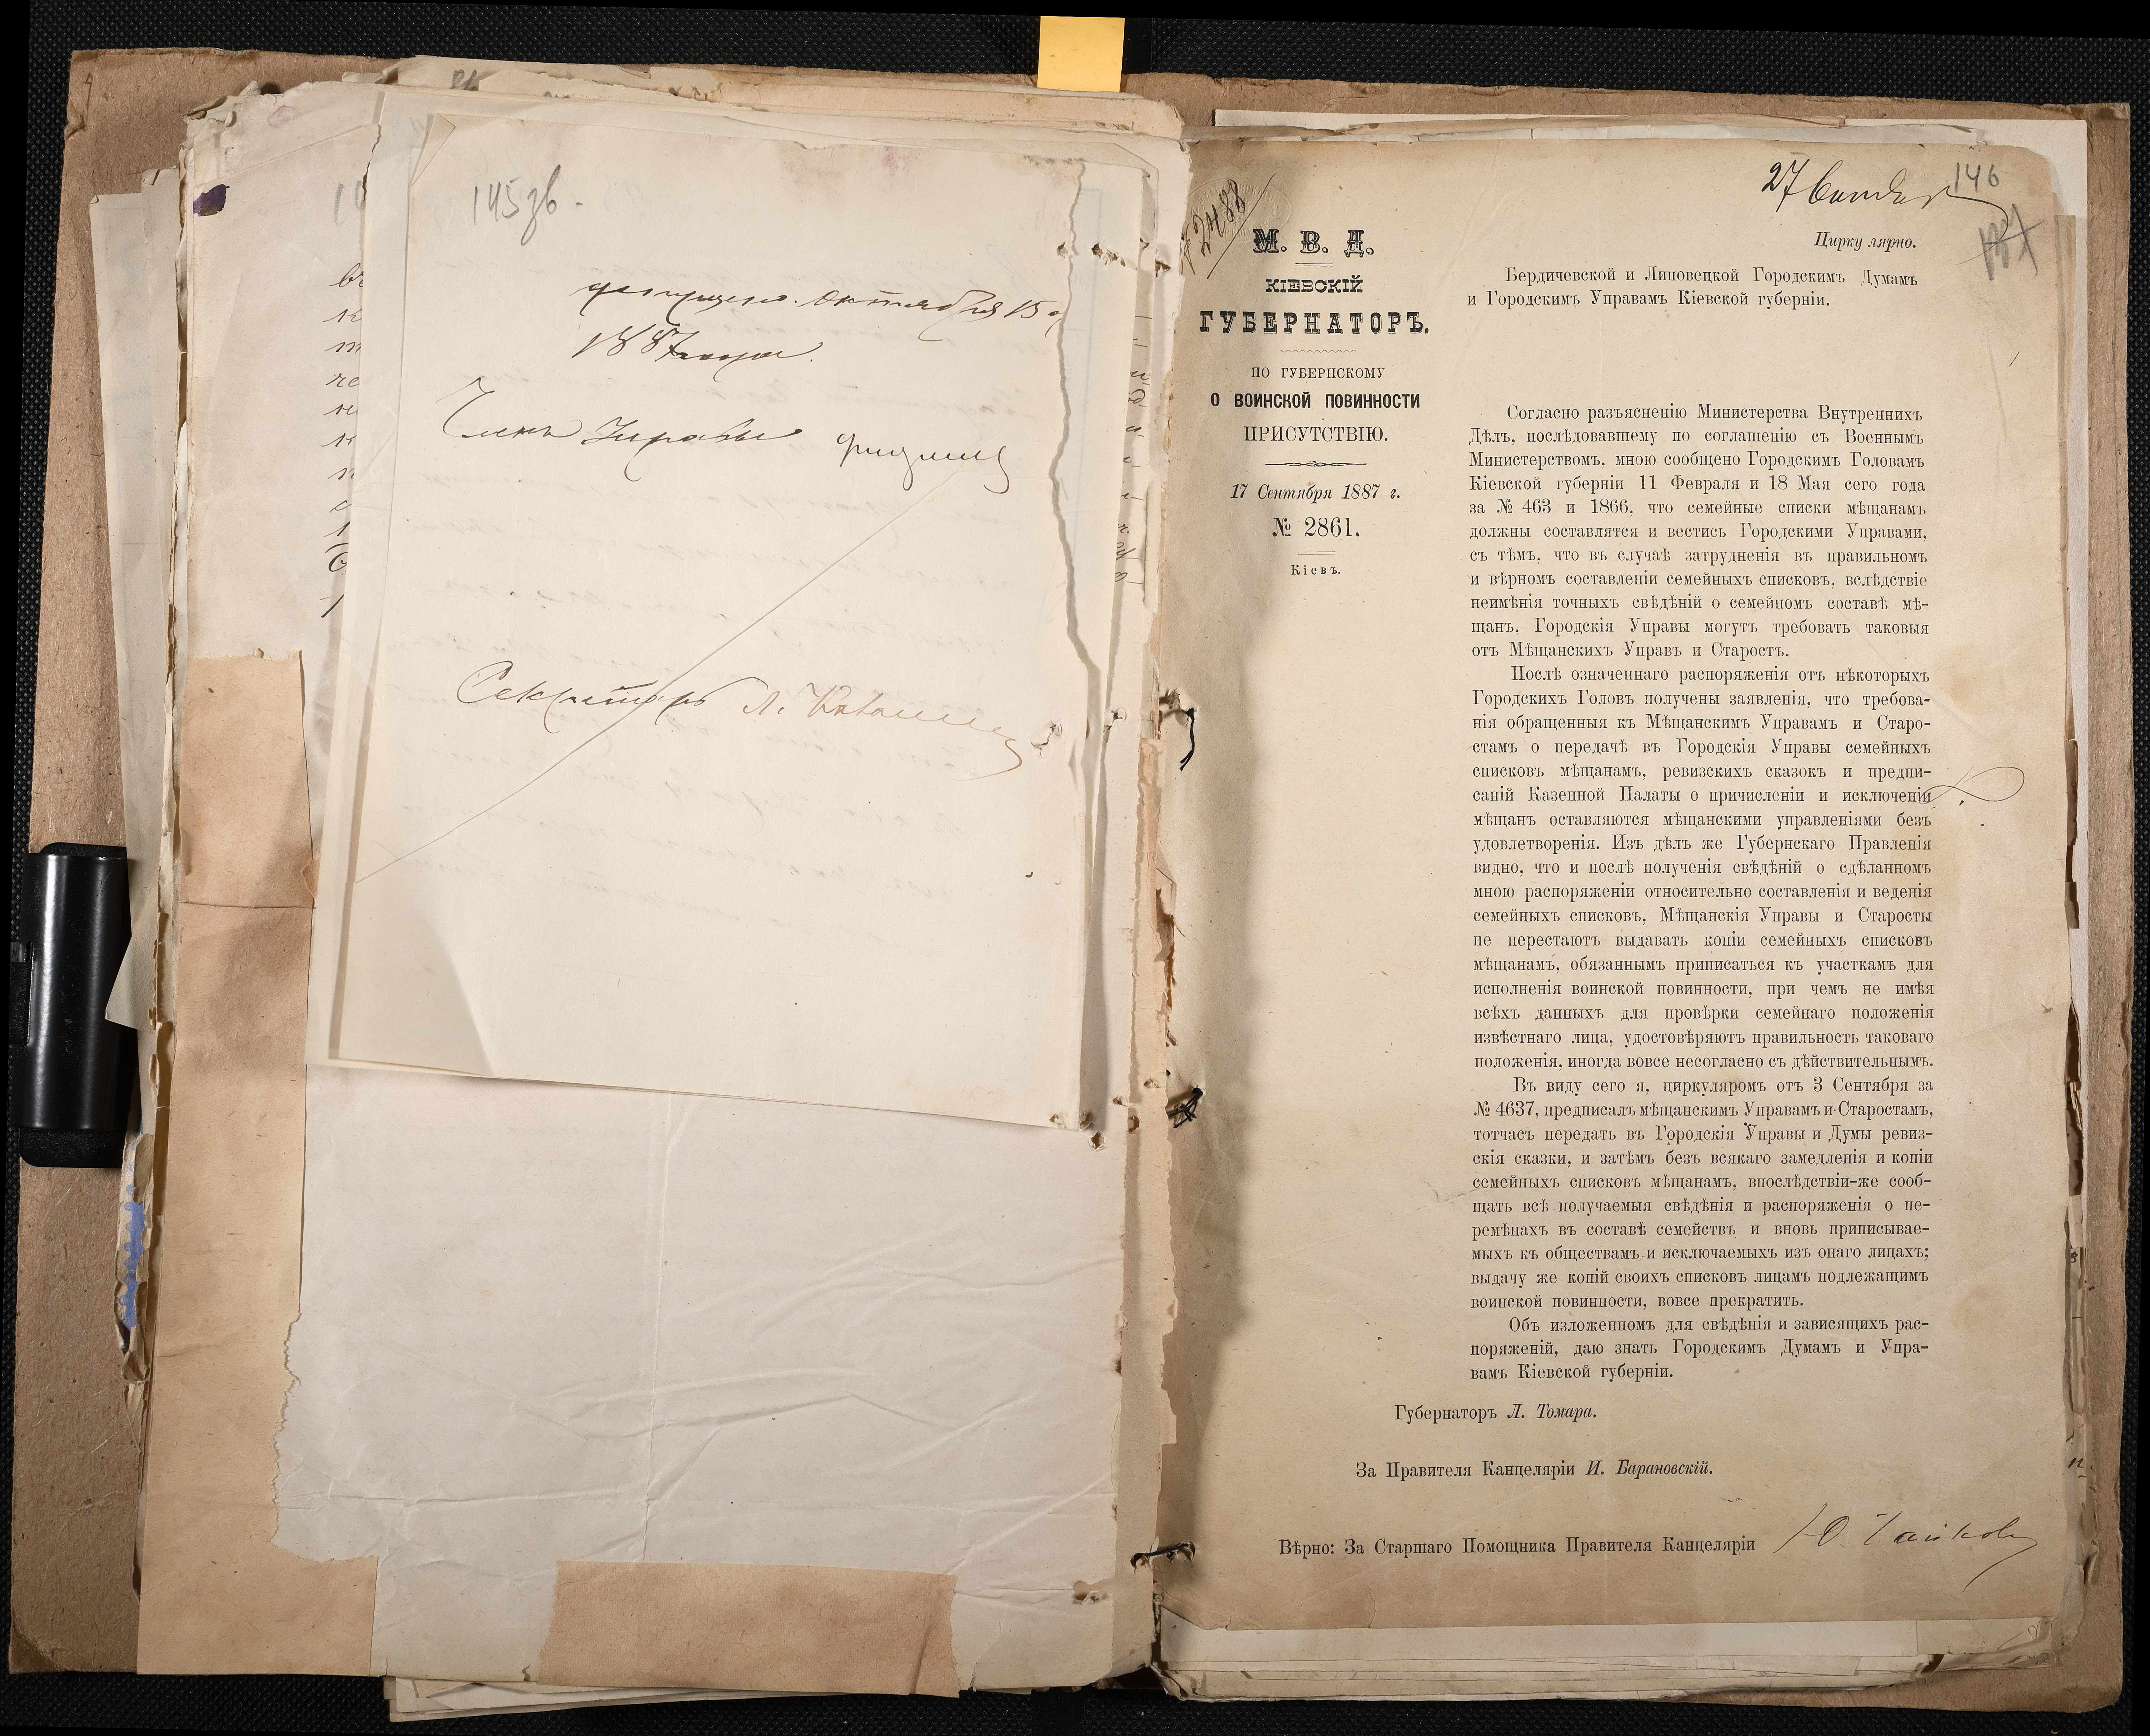 145 зв.
Октября 15
1887 года.
Членъ Управы
Секретарь
146
27 Сентября
№ 2488
М. В. Д.
КІЕВСКІЙ
ГУБЕРНАТОРЪ.
ПО ГУБЕРНСКОМУ
О ВОИНСКОЙ ПОВИННОСТИ
ПРИСУТСТВІЮ.
17 Сентября 1887 г.
№ 2861.
Кіевъ.
Циркулярно.
Бердичевской и Липовецкой Городскимъ Думамъ
и Городскимъ Управамъ Кіевской губерніи.
Согласно разъясненію Министерства Внутреннихъ
Дѣлъ, послѣдовавшему по соглашенію съ Военнымъ
Министерствомъ, мною сообщено Городскимъ Головамъ
Кіевской губерніи 11 Февраля и 18 Мая сего года
за № 463 и 1866, что семейные списки мѣщанамъ
должны составлятся и вестись Городскими Управами,
съ тѣмъ, что въ случаѣ затрудненія въ правильномъ
и вѣрномъ составленіи семейныхъ списковъ, вслѣдствіе
неимѣнія точныхъ свѣдѣній о семейномъ составѣ мѣ-
щанъ, Городскія Управы могутъ требовать таковыя
отъ Мѣщанскихъ Управъ и Старостъ.
Послѣ означеннаго распоряженія отъ нѣкоторыхъ
Городскихъ Головъ получены заявленія, что требова-
нія обращенныя къ Мѣщанскимъ Управамъ и Старо-
стамъ о передачѣ въ Городскія Управы семейныхъ
списковъ мѣщанамъ, ревизскихъ сказокъ и предпи-
саній Казенной Палаты о причисленіи и исключеніи
мѣщанъ оставляются мѣщанскими управленіями безъ
удовлетворенія. Изъ дѣлъ же Губернскаго Правленія
видно, что и послѣ полученія свѣдѣній о сдѣланномъ
мною распоряженіи относительно составленія и веденія
семейныхъ списковъ, Мѣщанскія Управы и Старосты
не перестаютъ выдавать копіи семейныхъ списковъ
мѣщанамъ, обязаннымъ приписаться къ участкамъ для
исполненія воинской повинности, при чемъ не имѣя
всѣхъ данныхъ для провѣрки семейнаго положенія
извѣстнаго лица, удостовѣряютъ правильность таковаго
положенія, иногда вовсе несогласно съ дѣйствительнымъ.
Въ виду сего я, циркуляромъ отъ 3 Сентября за
№ 4637, предписалъ мѣщанскимъ Управамъ и Старостамъ,
тотчасъ передать въ Городскія Управы и Думы ревиз-
скія сказки, и затѣмъ безъ всякаго замедленія и копіи
семейныхъ списковъ мѣщанамъ, впослѣдствіи-же сооб-
щать всѣ получаемыя свѣдѣнія и распоряженія о пе-
ремѣнахъ въ составѣ семействъ и вновь приписывае-
мыхъ къ обществамъ и исключаемыхъ изъ онаго лицахъ;
выдачу же копій своихъ списковъ лицамъ подлежащимъ
воинской повинности, вовсе прекратить.
Объ изложенномъ для свѣдѣнія и зависящихъ рас-
поряженій, даю знать Городскимъ Думамъ и Упра-
вамъ Кіевской губерніи.
Губернаторъ Л. Томара.
За Правителя Канцеляріи И. Барановскій.
Вѣрно: За Старшаго Помощника Правителя Канцеляріи